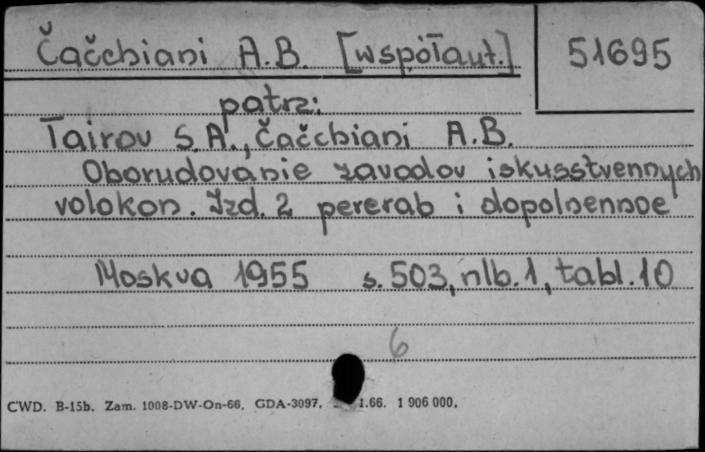 Čačchiani A.B. [współaut.] 51695
patrz:
Tairov S.A., Čačchiani A.B.
Oborudovanie zavodov iskusstvennych
volokon. Izd. 2 pererab i dopolnennoe
Moskva 1955 s. 503, nlb. 1, tabl. 10
6
CWD. B-15b. Zam. 1008-DW-On-66. GDA-3097. 1.66. 1 906 000.